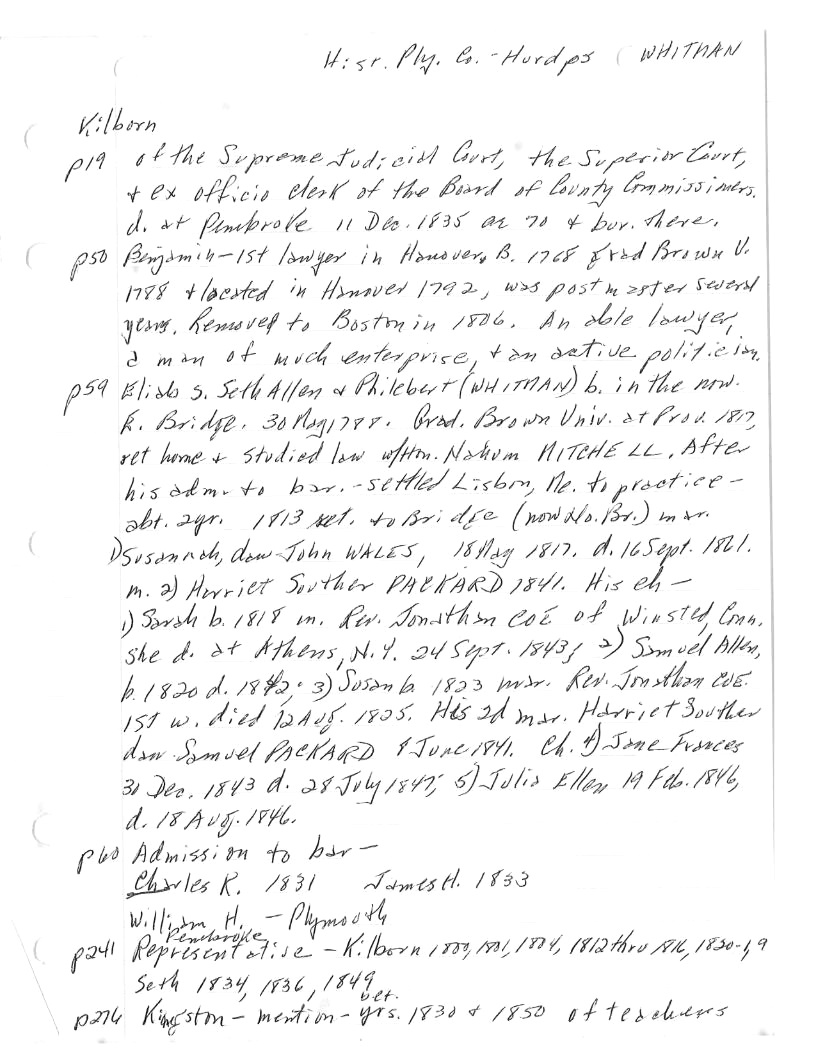 Hist. Ply. Co. - Hurd ps ( WHITMAN
Kilborn
p19 of the Supreme Judicial Court, the Superior Court,
+ ex officio clerk of the Board of County Commissioners.
d. at Pembroke 11 Dec. 1835 ae 70 + bur. there.
p50 Benjamin - 1st lawyer in Hanover, B. 1768 grad Brown U.
1788 + located in Hanover 1792, was postmaster several
years. Removed to Boston in 1806. An able lawyer,
a man of much enterprise, + an active politician.
p59 Eliab s. Seth Allen & Philebert (WHITMAN) b. in the now.
E. Bridge. 30 May 1788. Grad. Brown Univ. at Prov. 1817,
ret home + studied law w/Hon. Nahum MITCHELL. After
his adm. to bar. - settled Lisbon, Me. to practice -
abt. 2yr. 1813 ret. to Bridge (now No. Br.) mar.
1) Susannah, dau John WALES, 18 May 1817. d. 16 Sept. 1861.
m. 2) Harriet Souther PACKARD 1841. His ch -
1) Sarah b. 1818 m. Rev. Jonathan COE of Winsted, Conn.
She d. at Athens, N.Y. 24 Sept. 1843; 2) Samuel Allen,
b. 1820 d. 1842; 3) Susan b. 1823 mar. Rev. Jonathan COE.
1st w. died 12 Aug. 1825. His 2d mar. Harriet Souther
dau Samuel PACKARD 8 June 1841. Ch. 4) Jane Frances
30 Dec. 1843 d. 28 July 1847; 5) Julia Ellen 19 Feb. 1846,
d. 18 Aug. 1846.
p60 Admission to bar -
Charles R. 1831 James H. 1833
William H. - Plymouth
Pembroke
p241 Representative - Kilborn 1800, 1801, 1804, 1812 thru 1816, 1820-1, 9
Seth 1834, 1836, 1849
p276 Kingston - mention - bet. yrs. 1830 + 1850 of teachers